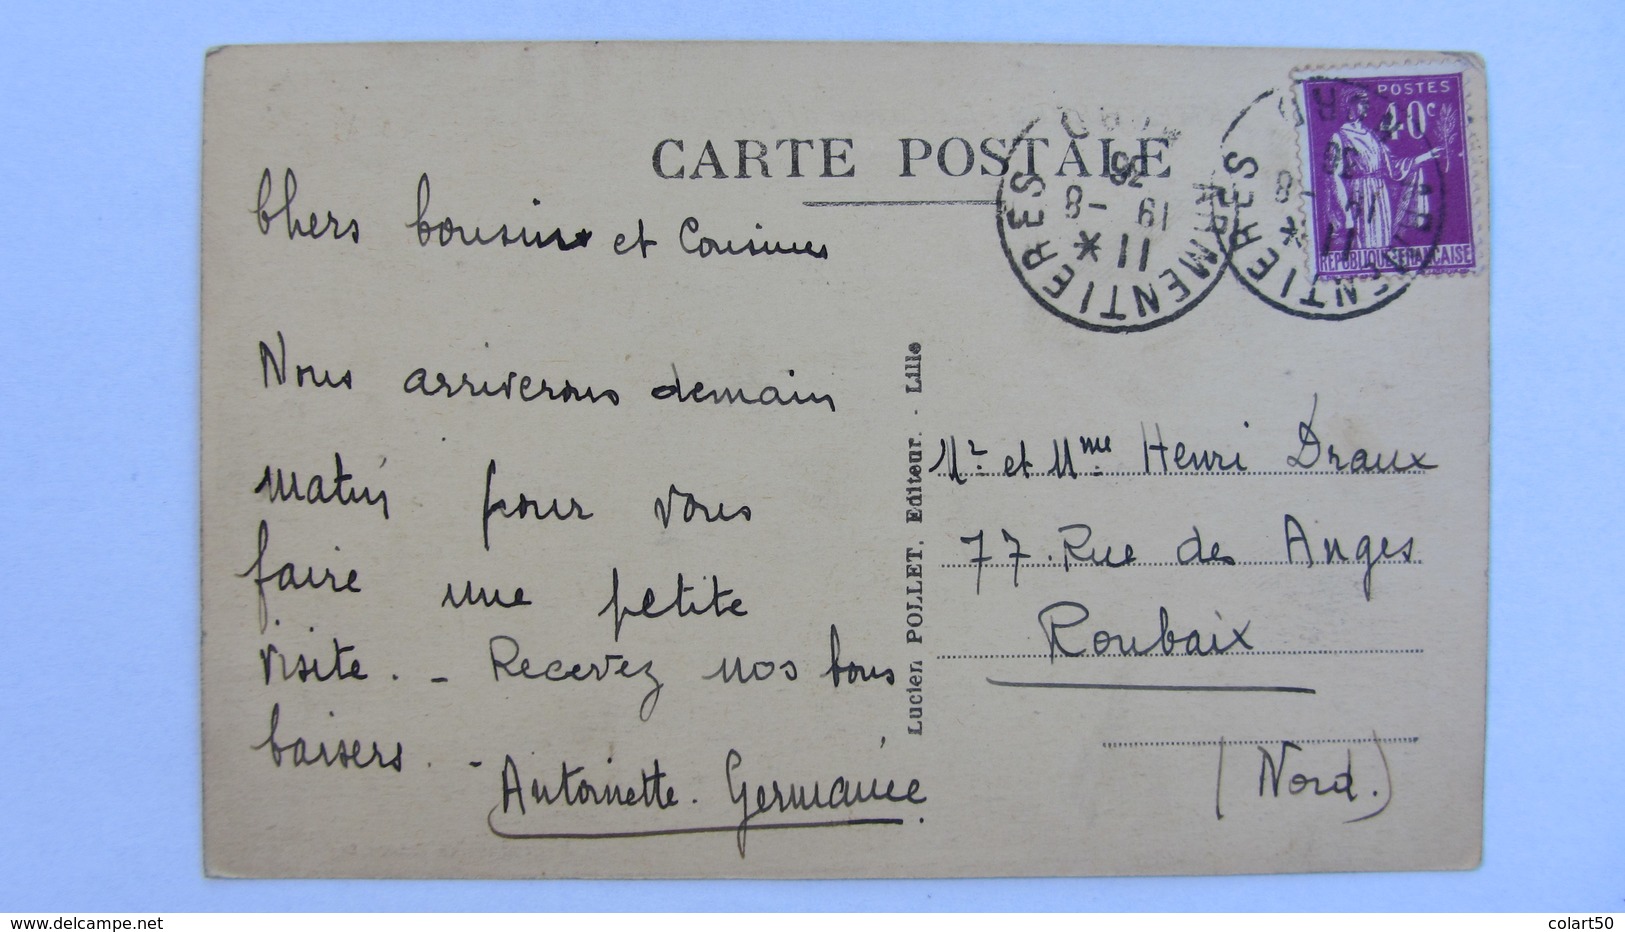 CARTE POSTALE
Chers Cousins et Cousines
Nous arriverons demain
matin pour vous
faire une petite
visite. - Recevez nos bons
baisers. -
Antoinette. Germaine.
Lucien POLLET, Editeur. - Lille
POSTES
40c
REPUBLIQUE FRANCAISE
ARMENTIERES
11 *
19 -8
36
ARMENTIERES
11 *
19 -8
36
Mr et Mme Henri Draux
77. Rue des Anges
Roubaix
(Nord.)
www.delcampe.net
colart50